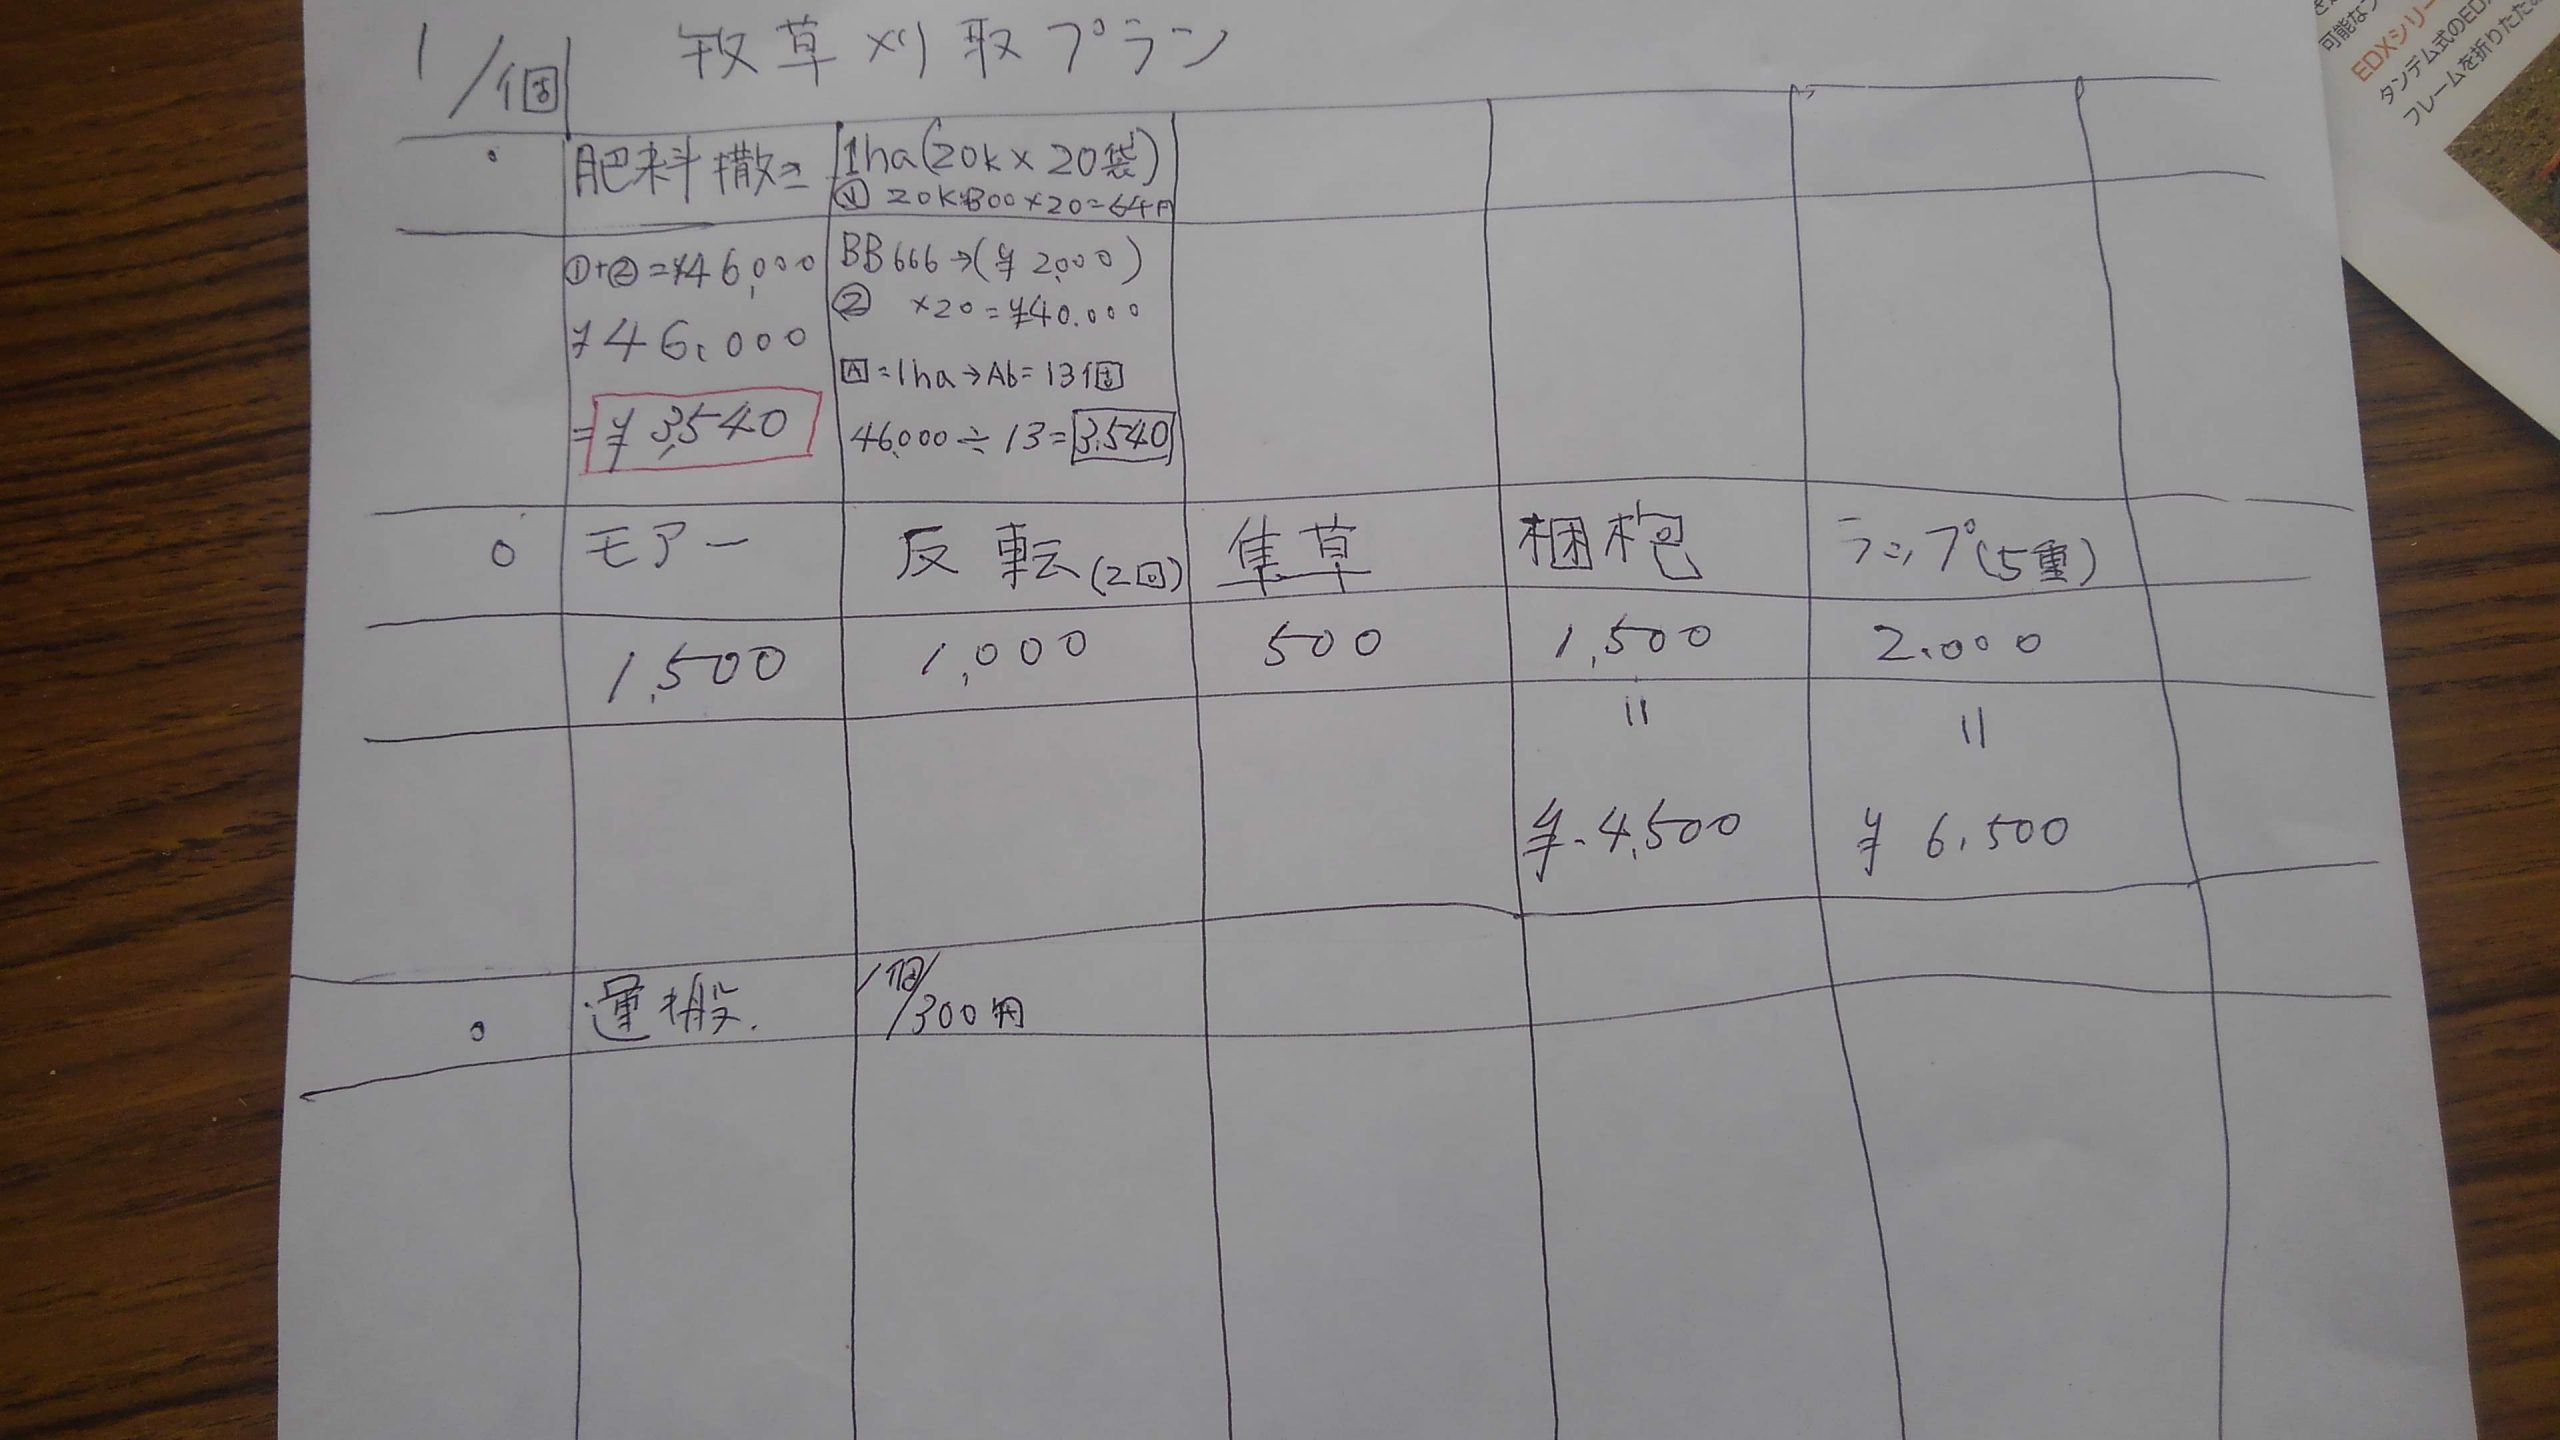 1/個
牧草刈取プラン
肥料撒き
1ha(20k×20袋)
① 20K300×20=6千円
①+②=¥46,000
¥46,000
=¥3,540
BB666→(¥2,000)
② ×20=¥40.000
A=1ha→Ab=13個
46,000÷13=3,540
モアー 反転(2回) 集草 梱枹 ラップ(5重)
1,500 1,000 500 1,500 2.000
=
=
¥-4,500 ¥6,500
運搬. 1個/300円
可能なフ
EDXシリー
タンデム式のED
フレームを折りたた